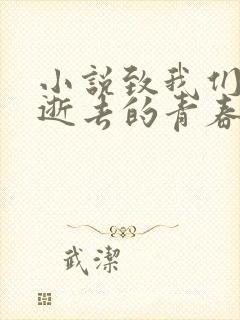 小説致我们
逝去的青春
武潔